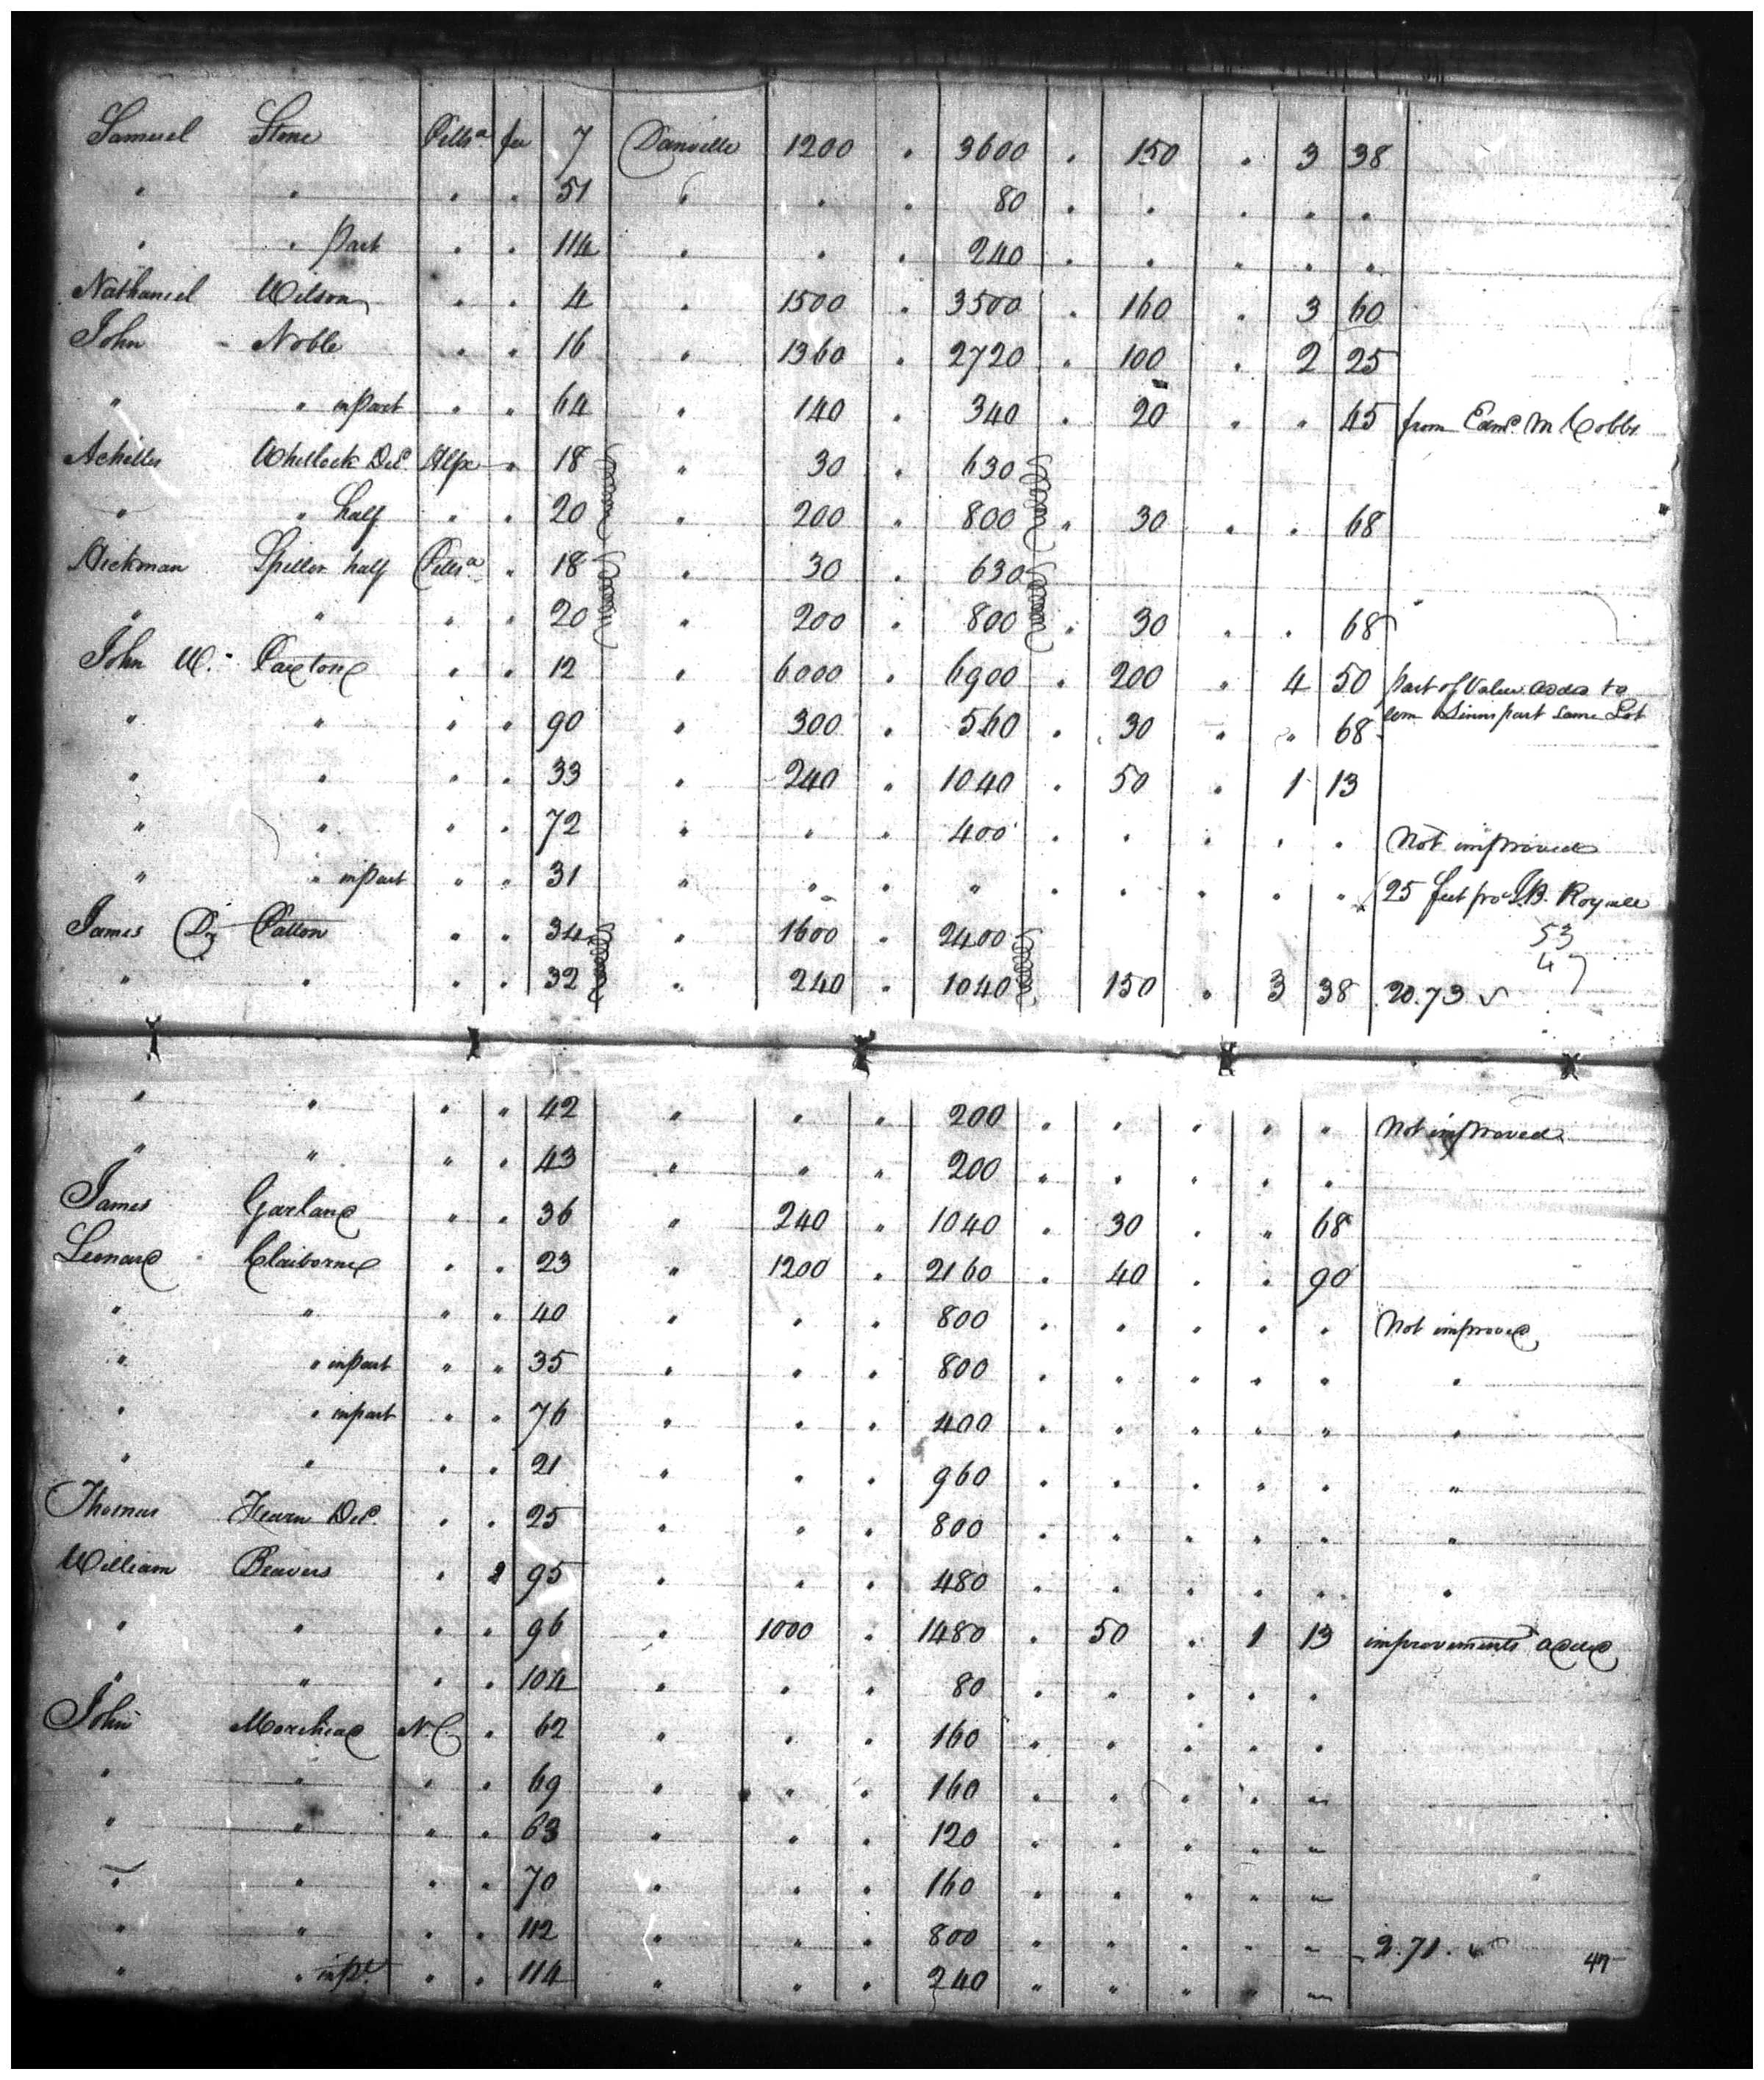 Samuel Stone Pittsa fee 7 Danville 1200 " 3600 " 150 " 3 38
" " " " 51 " " " 80 " " " " "
" " Part " " 114 " " " 240 " " " " "
Nathaniel Wilson " " 4 " 1500 " 3500 " 160 " 3 60
John Noble " " 16 " 1360 " 2720 " 100 " 2 25
" " in Part " " 64 " 140 " 340 " 20 " " 45 from Edmd. M Cobbs
Achilles Whitlock Decd. " 18 " 30 " 630
" " half " " 20 " 200 " 800 " 30 " " 68
Hickman Spiller half Pittsa " 18 " 30 " 630
" " " " 20 " 200 " 800 " 30 " " 68
John W. Paxton " " 12 " 6000 " 6900 " 200 " 4 50 part of Value added to
" " " " 90 " 300 " 560 " 30 " " 68 Wm Linns part same Lot
" " " " 33 " 240 " 1040 " 50 " 1 13
" " " " 72 " " " 400 " " " " " Not improved
" " in Part " " 31 " " " " " " " " " 25 feet pro J.B. Royall
James D. Patton " " 34 " 1600 " 2400 53
47
" " " " 32 " 240 " 1040 150 " 3 38 20.73 ✓
" " " " 42 " " " 200 " " " " " Not improved
" " " " 43 " " " 200 " " " " "
James Garland " " 36 " 240 " 1040 " 30 " " 68
Leonard Claiborne " " 23 " 1200 " 2160 " 40 " " 90
" " " " 40 " " " 800 " " " " " Not improved
" " in part " " 35 " " " 800 " " " " " "
" " in part " " 76 " " " 400 " " " " " "
" " " " 21 " " " 960 " " " " " "
Thomas Fearn Decd. " " 25 " " " 800 " " " " " "
William Beavers " " 95 " " " 480 " " " " " "
" " " " 96 " 1000 " 1480 " 50 " 1 13 improvements added
" " " " 104 " " " 80 " " " " "
John Morehead N.C. " 62 " " " 160 " " " " "
" " " " 69 " " " 160 " " " " "
" " " " 63 " " " 120 " " " " "
" " " " 70 " " " 160 " " " " "
" " " " 112 " " " 800 " " " " " 2.71. ✓
" " in pt. " " 114 " " " 240 " " " " " 47